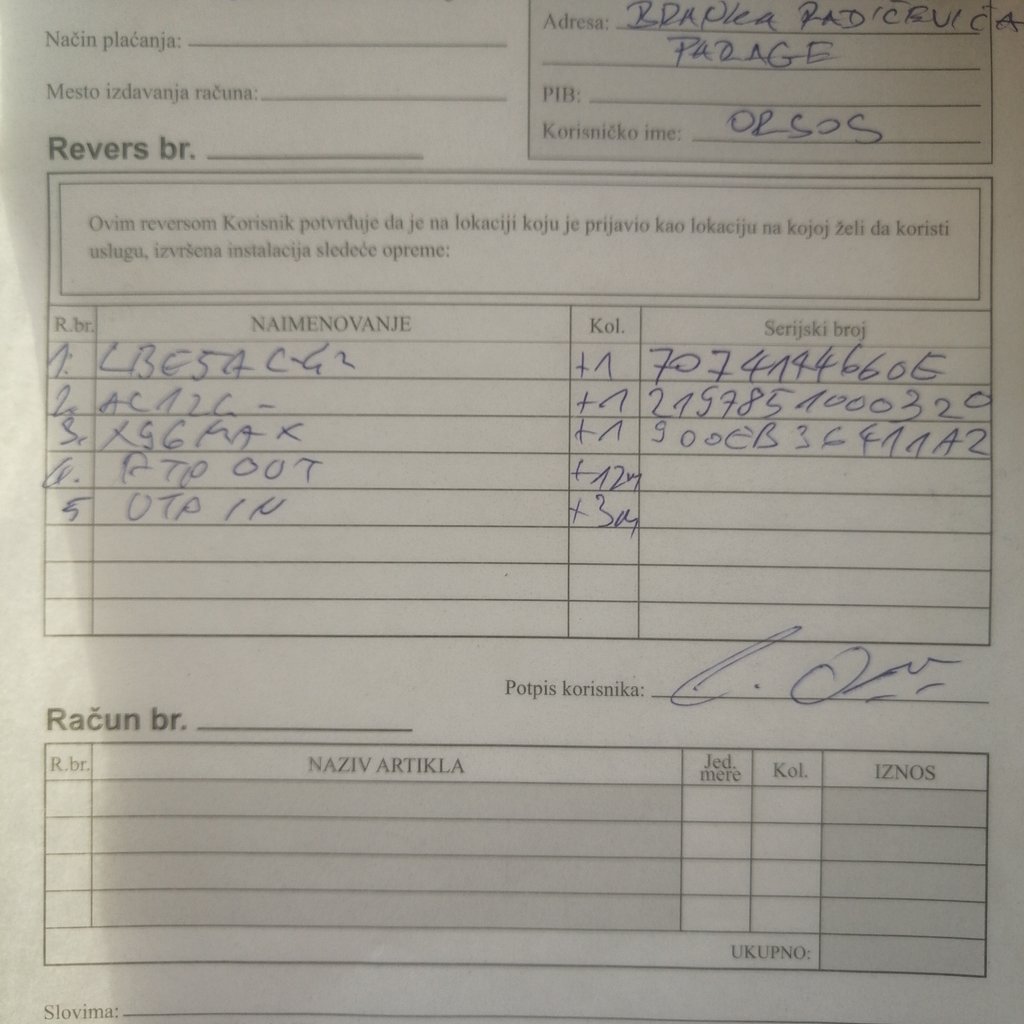 Način plaćanja:
Adresa: BRANKA RADIČEVIĆA
PARAGE
Mesto izdavanja računa:
PIB:
Korisničko ime: ORSOS
Revers br.
Ovim reversom Korisnik potvrđuje da je na lokaciji koju je prijavio kao lokaciju na kojoj želi da koristi
uslugu, izvršena instalacija sledeće opreme:
R.br. NAIMENOVANJE Kol. Serijski broj
1. LBE5AC-G2 +1 70741944660E
2. AC12G - +1 2197851000320
3. X96 MAX +1 900EB36411A2
4. FTP OUT +12m
5 UTP IN +3m
Potpis korisnika:
Račun br.
R.br. NAZIV ARTIKLA Jed. mere Kol. IZNOS
UKUPNO:
Slovima: